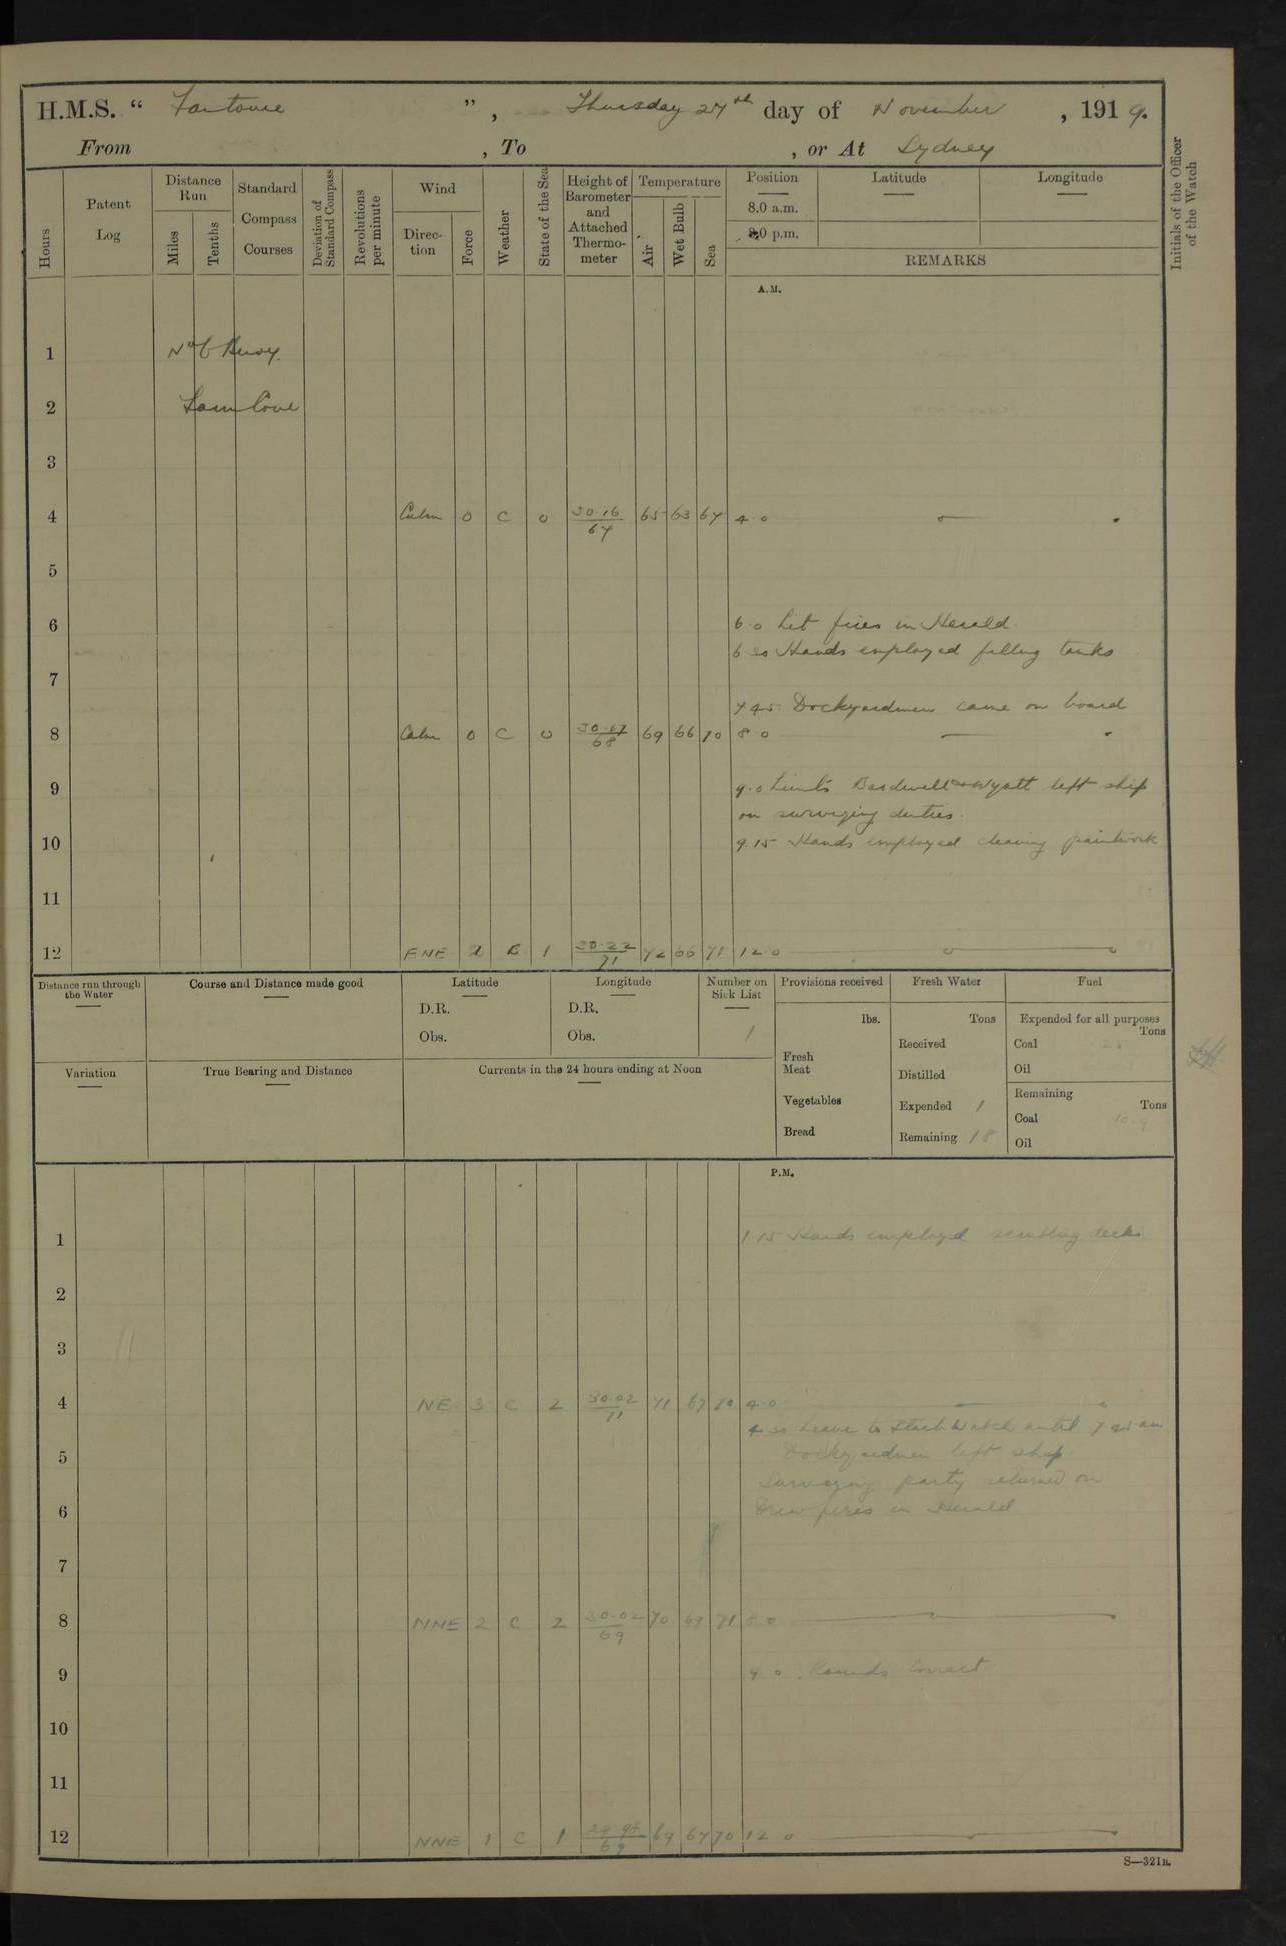 H.M.S. " Fantome ", Thursday 27th day of November, 1919.
From , To , or At Sydney
Hours
Patent Log
Distance Run
Miles
Tenths
Standard Compass Courses
Deviation of Standard Compass
Revolutions per minute
Wind
Direction
Force
Weather
State of the Sea
Height of Barometer and Attached Thermometer
Temperature
Air
Wet Bulb
Sea
Position
8.0 a.m.
8.0 p.m.
Latitude
Longitude
REMARKS
Initials of the Officer of the Watch
A.M.
1 No 6 Buoy.
2 Farm Cove
3
4 Calm 0 C 0 30.16/67 65 63 67 4.0
5
6 6.0 Lit fires in Herald
Hands employed filling tanks
7
7 45 Dockyardmen came on board
8 Calm 0 C 0 30.17/68 69 66 70 8 0
9 9.0 Lieuts Bardwell and Wyatt left ship
on surveying duties.
10 9.15 Hands employed cleaning paintwork
11
12 ENE 2 B 1 30.22/71 72 66 71 12 0
Distance run through the Water
Course and Distance made good
Latitude
D.R.
Obs.
Longitude
D.R.
Obs.
Number on Sick List
1
Provisions received
lbs.
Fresh Meat
Vegetables
Bread
Fresh Water
Tons
Received
Distilled
Expended 1
Remaining 18
Fuel
Expended for all purposes
Tons
Coal
Oil
Remaining
Tons
Coal
Oil
Variation
True Bearing and Distance
Currents in the 24 hours ending at Noon
P.M.
1 1 15 Hands employed scrubbing decks
2
3
4 NE 3 C 2 30.02/71 71 67 70 4.0
Leave to Starb Watch until 7 45 am
5 Dockyardmen left ship
Surveying party returned on
6 Drew fires in Herald
7
8 NNE 2 C 2 30.02/69 70 71 8 0
9 9 0 Rounds Correct
10
11
12 NNE 1 C 1 29.95/69 69 67 70 12 0
S—321B.